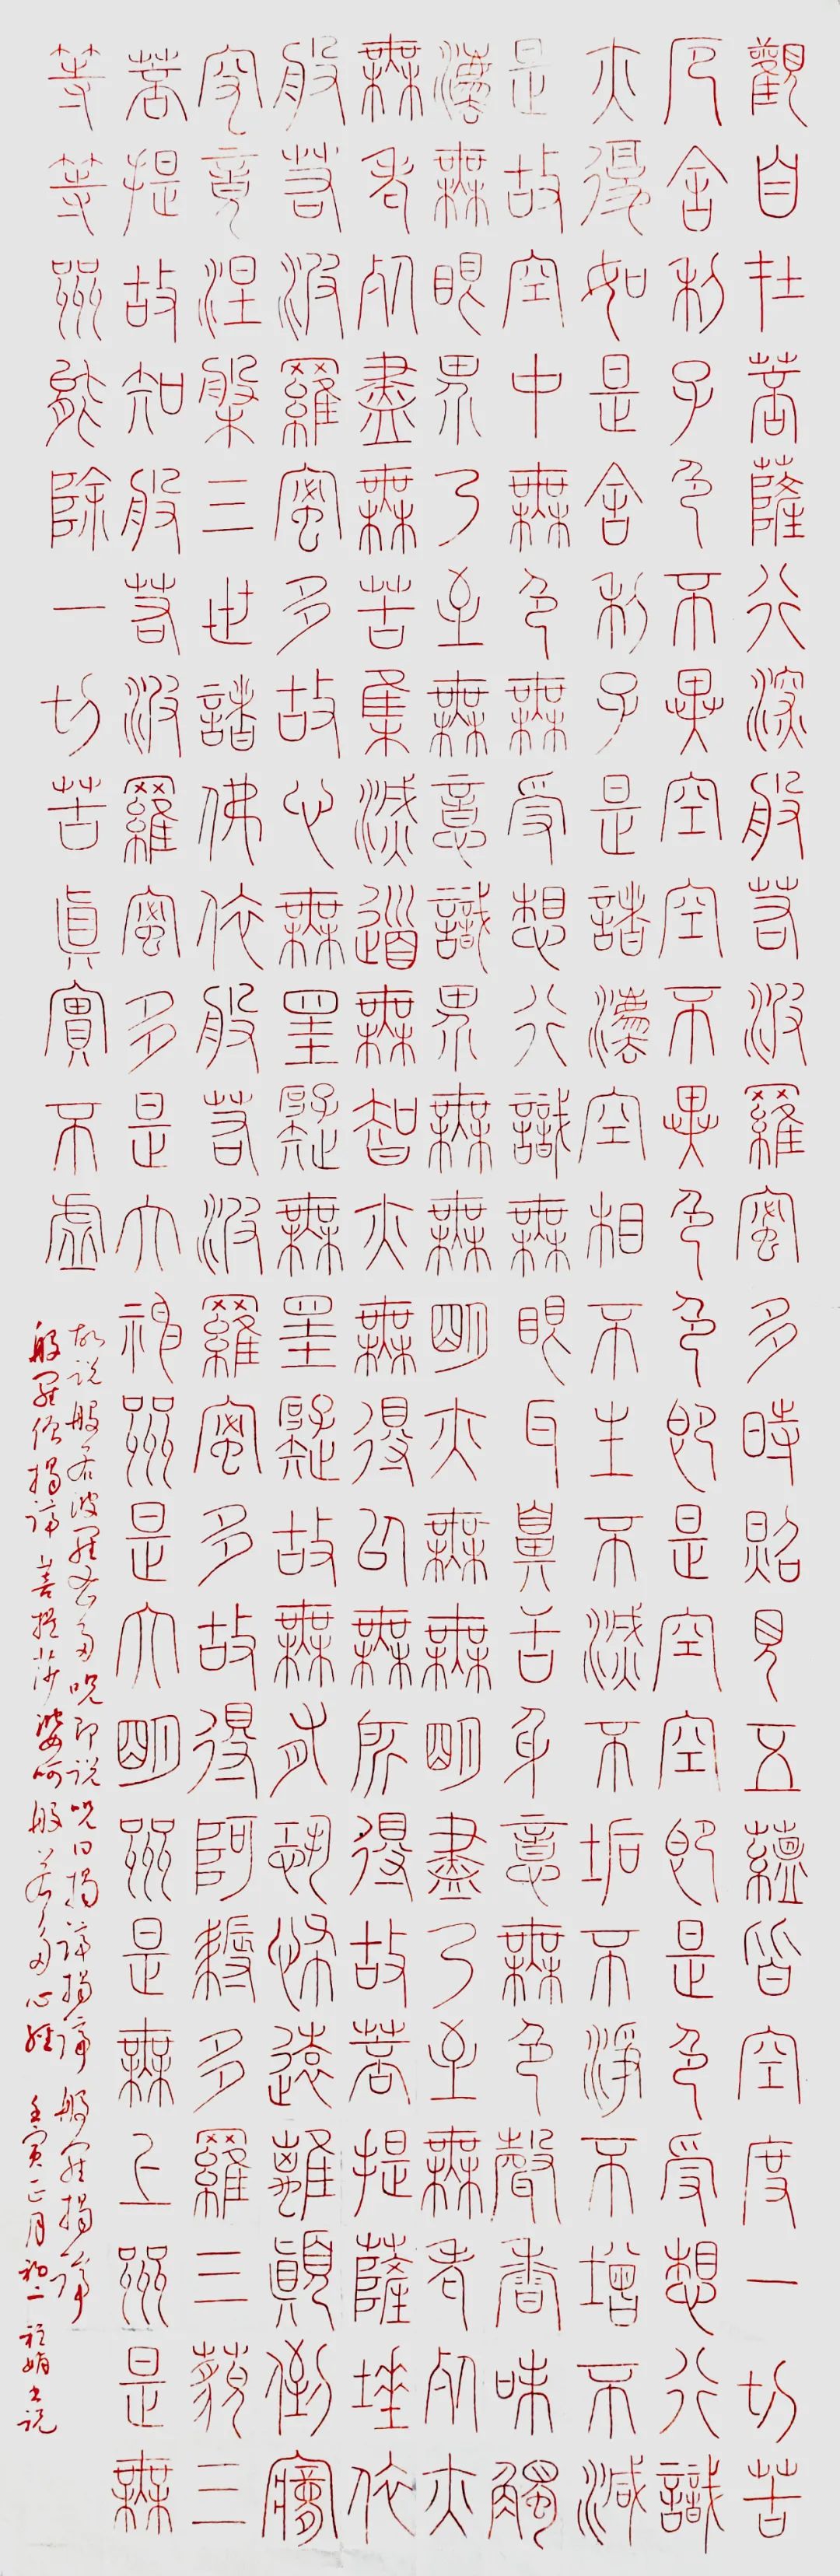 觀自在菩薩行深般若波羅蜜多時照見五蘊皆空度一切苦
厄舍利子色不異空空不異色色即是空空即是色受想行識
亦復如是舍利子是諸法空相不生不滅不垢不淨不增不減
是故空中無色無受想行識無眼耳鼻舌身意無色聲香味觸
法無眼界乃至無意識界無無明亦無無明盡乃至無老死亦
無老死盡無苦集滅道無智亦無得以無所得故菩提薩埵依
般若波羅蜜多故心無罣礙無罣礙故無有恐怖遠離顛倒夢
究竟涅槃三世諸佛依般若波羅蜜多故得阿耨多羅三藐三
菩提故知般若波羅蜜多是大神咒是大明咒是無上咒是無
等等咒能除一切苦真實不虛
故说般若波罗蜜多呪即说呪曰揭谛揭谛 般罗揭谛
般罗僧揭谛 菩提莎婆呵 般若多心经 壬寅正月初二